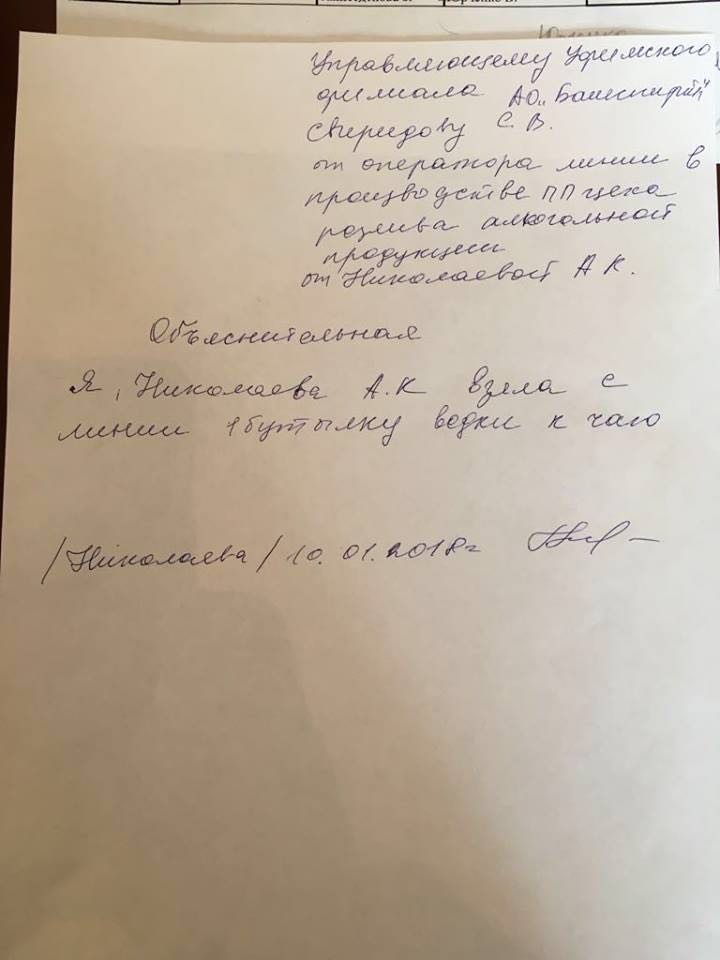 Управляющему Уфимского
филиала АО „Башспирт"
Свиридову С. В.
от оператора линии в
производстве ПП цеха
розлива алкогольной
продукции
от Николаевой А К.
Объяснительная
Я, Николаева А.К взяла с
линии 1 бутылку водки к чаю
/Николаева/ 10.01.2018г